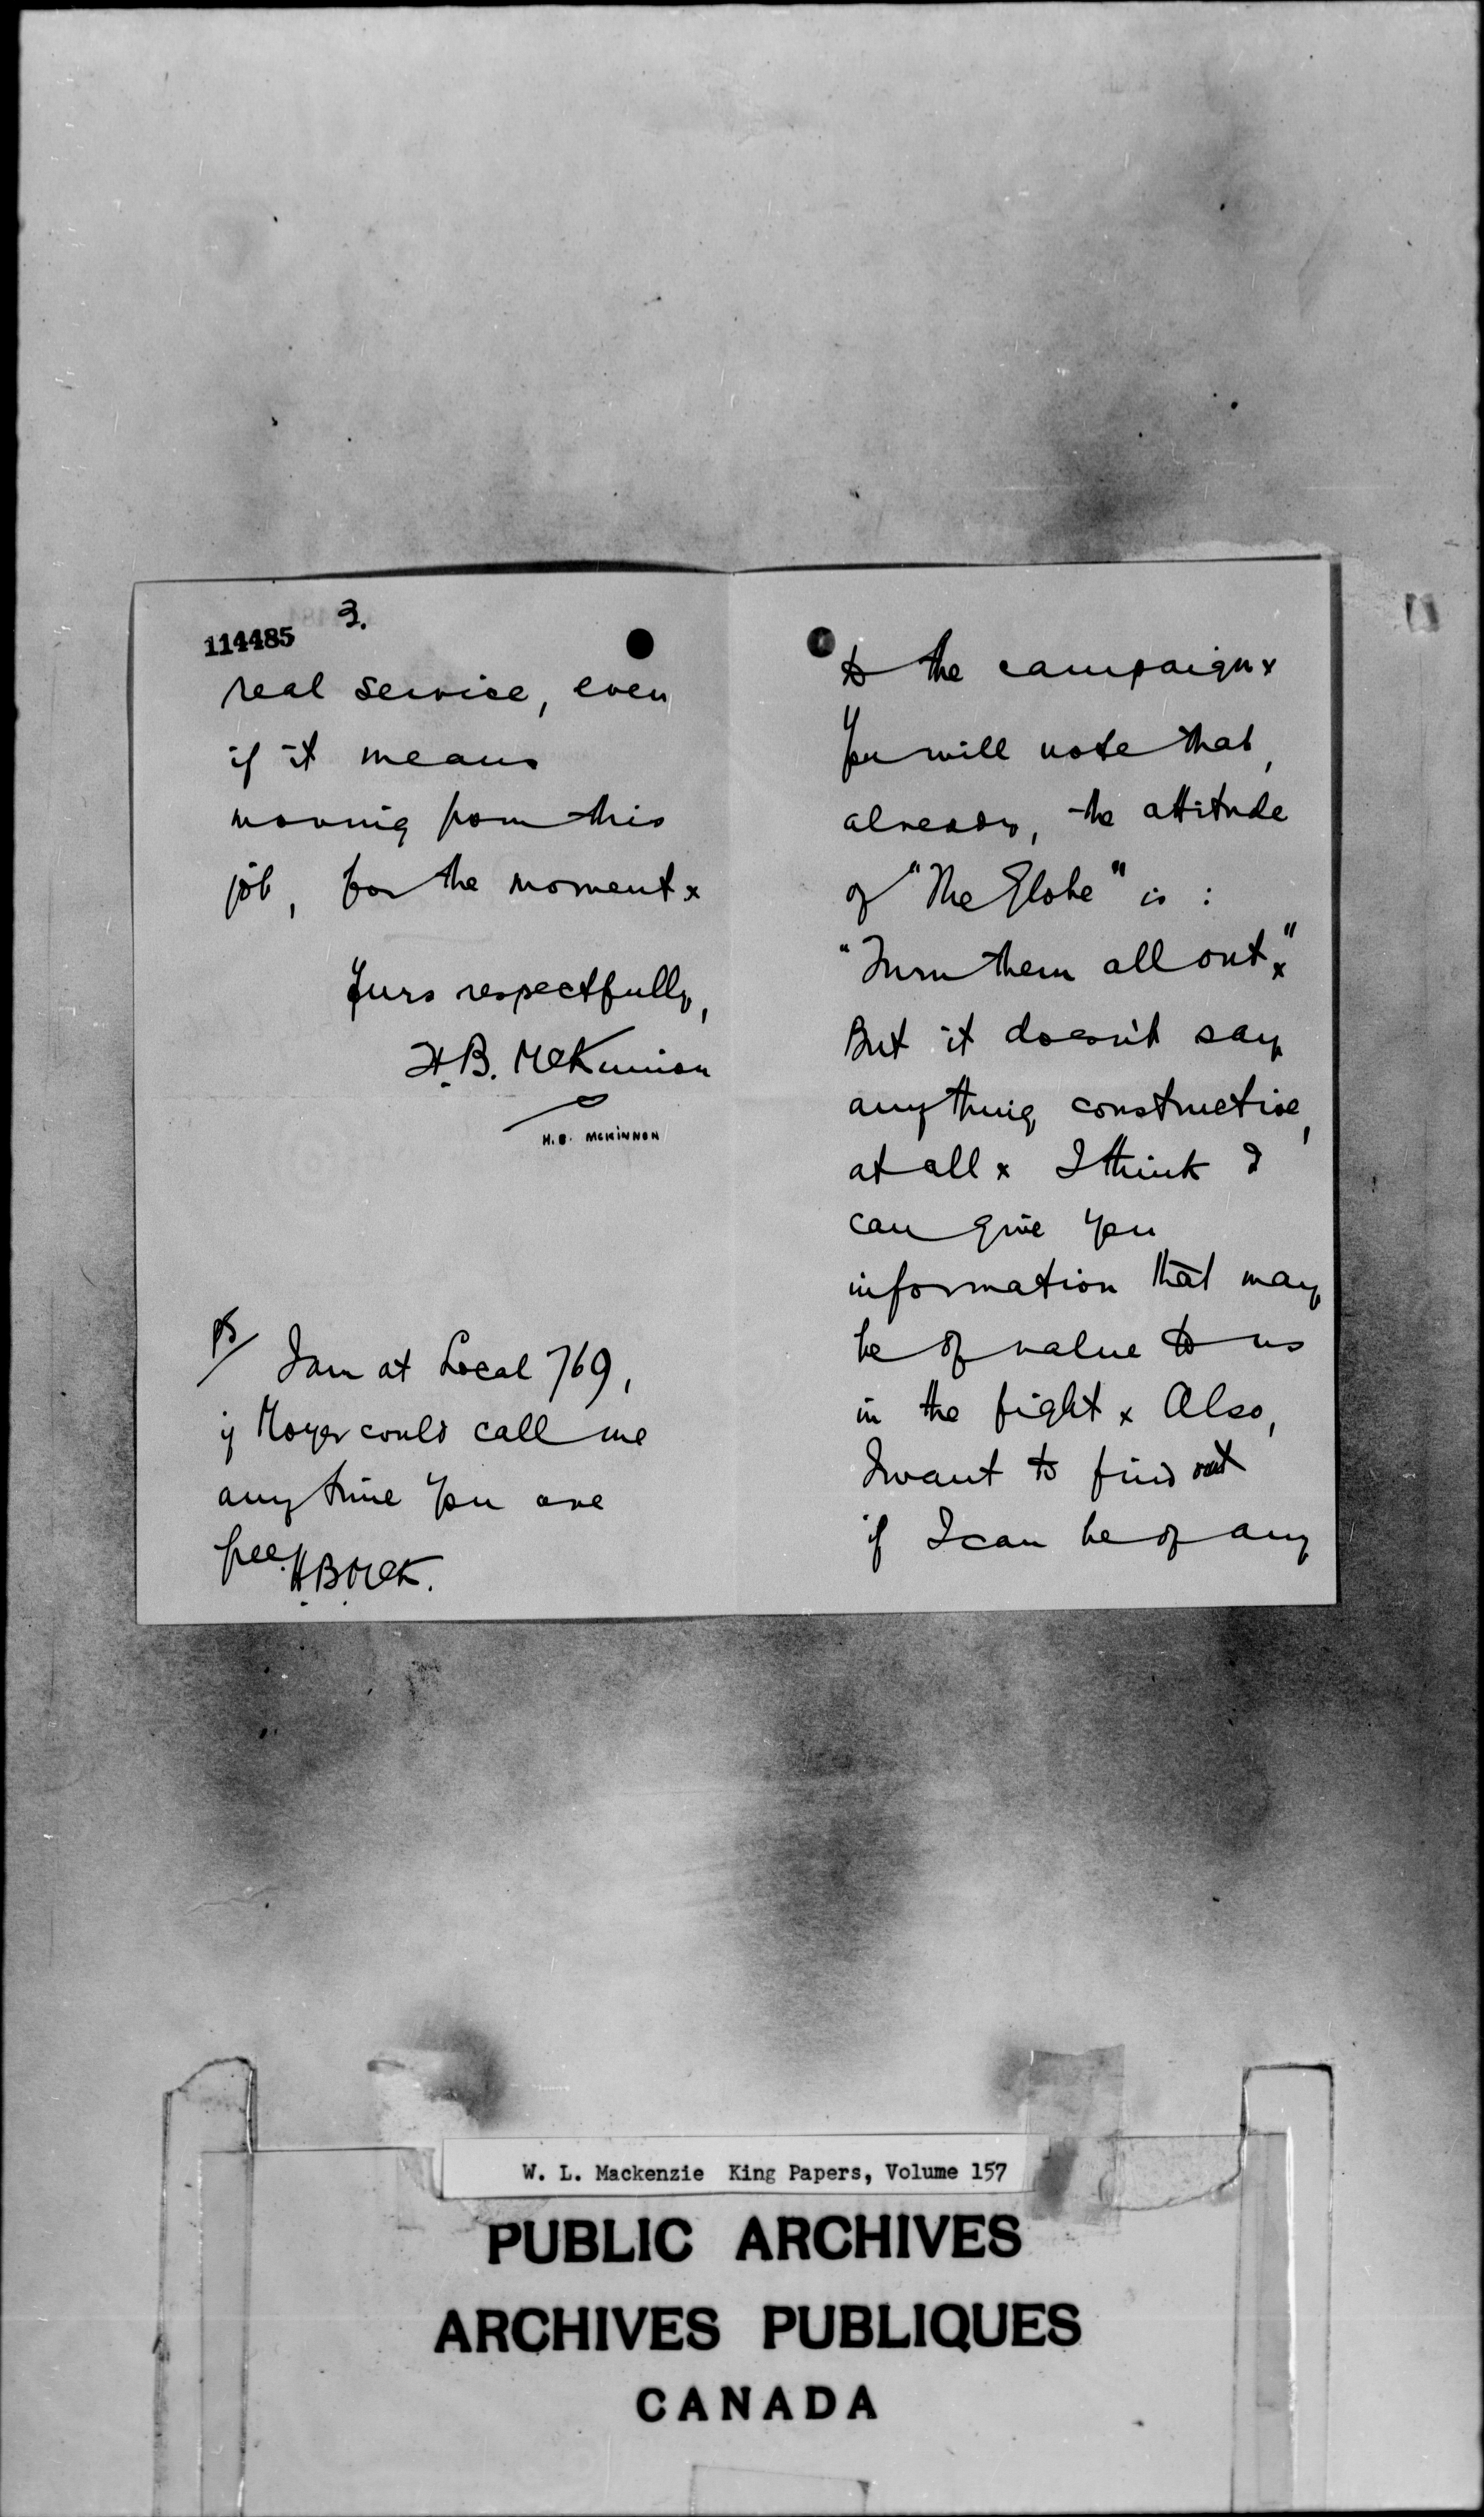 114485
3.
real service, even
if it means
moving from this
job, for the moment x
Yours respectfully,
H.B. McKinnon
H.B. McKINNON
ps/ I am at Local 769,
if Moyer could call me
any time you are
free. H.B.McK.
to the campaign x
You will note that,
already, the attitude
of "The Globe" is :
"Turn them all out x"
But it doesn't say
anything constructive,
at all x I think I
can give you
information that may
be of value to us
in the fight x Also,
I want to find out
if I can be of any
W. L. Mackenzie King Papers, Volume 157
PUBLIC ARCHIVES
ARCHIVES PUBLIQUES
CANADA